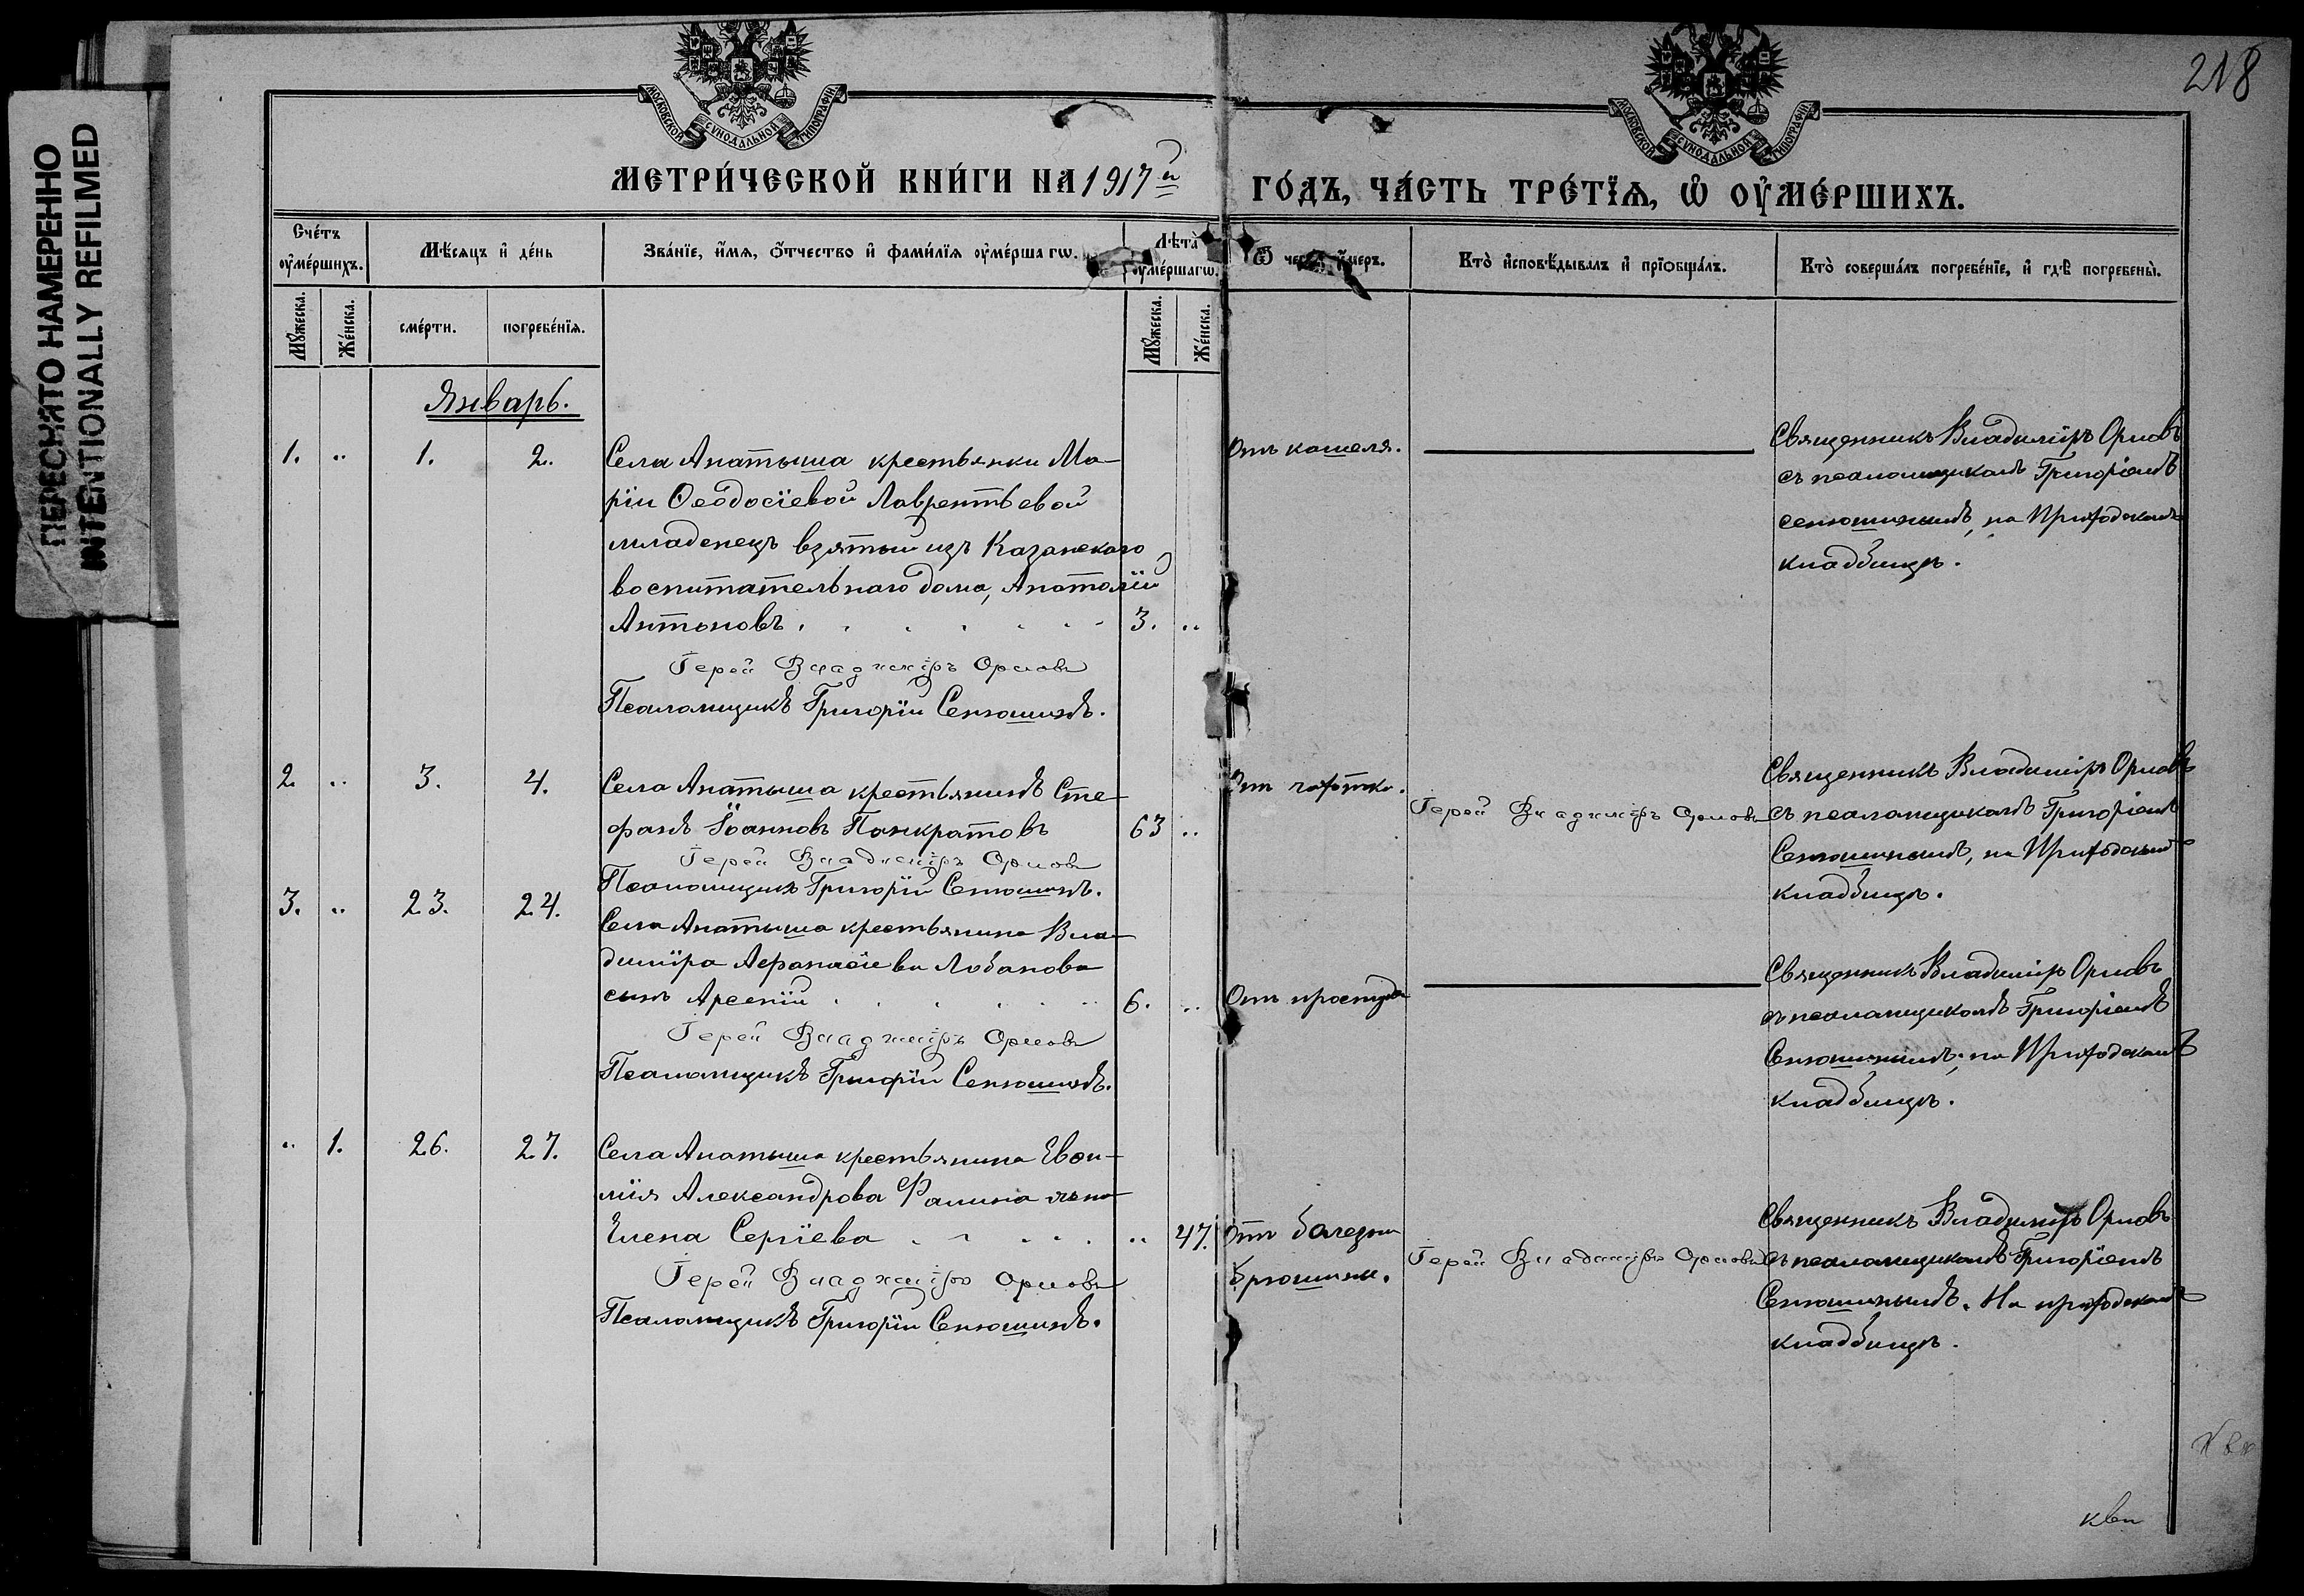 ПЕРЕСНЯТО НАМЕРЕННО
INTENTIONALLY REFILMED
218
МОСКОВСКОЙ СѴНОДАЛЬНОЙ ТИПОГРАФІИ
МОСКОВСКОЙ СѴНОДАЛЬНОЙ ТИПОГРАФІИ
МЕТРИ́ЧЕСКОЙ КНИ́ГИ НА 1917й
ГО́ДЪ, ЧА́СТЬ ТРЕ́ТЇѦ, Ѡ҆ ОУ҆МЕ́РШИХЪ.
Сче́тъ
оу҆ме́ршихъ.
Мѣ́сяцъ и҆ де́нь
Зва́нїе, и҆́мя, ѻ҆́тчество и҆ фами́лїя оу҆ме́ршагѡ.
Лѣта̀
оу҆ме́ршагѡ.
Ѿ чего̀ оу҆́меръ.
Кто̀ и҆сповѣ́дывалъ и҆ прїѻбща́лъ.
Кто̀ соверша́лъ погребе́нїе, и҆ гдѣ̀ погребены̀.
Мꙋ́жеска.
Же́нска.
сме́рти.
погребе́нїя.
Мꙋ́жеска.
Же́нска.
Январь.
1. „ 1. 2.
Села Анатыша крестьянки Ма-
ріи Ѳеодосіевой Лаврентьевой
младенецъ взятый изъ Казанскаго
воспитательнаго дома, Анатолій
Антоновъ. 3. „
Іерей Владиміръ Орловъ
Псаломщикъ Григорій Сенюшинъ.
Отъ кашеля.
Священникъ Владиміръ Орловъ
съ псаломщикомъ Григоріемъ
Сенюшинымъ, на Приходскомъ
кладбищѣ.
2. „ 3. 4.
Села Анатыша крестьянинъ Сте-
фанъ Іоанновъ Панкратовъ 63 „
Іерей Владиміръ Орловъ
Псаломщикъ Григорій Сенюшинъ.
Отъ чахотки.
Іерей Владиміръ Орловъ
Священникъ Владиміръ Орловъ
съ псаломщикомъ Григоріемъ
Сенюшинымъ, на Приходскомъ
кладбищѣ.
3. „ 23. 24.
Села Анатыша крестьянина Вла-
диміра Аѳанасіева Лобанова
сынъ Арсеній 6. „
Іерей Владиміръ Орловъ
Псаломщикъ Григорій Сенюшинъ.
Отъ простуды
Священникъ Владиміръ Орловъ
съ псаломщикомъ Григоріемъ
Сенюшинымъ, на Приходскомъ
кладбищѣ.
„ 1. 26. 27.
Села Анатыша крестьянина Евѳи-
мія Александрова Фалина жена
Елена Сергіева „ 47.
Іерей Владиміръ Орловъ
Псаломщикъ Григорій Сенюшинъ.
Отъ болезни
брюшины.
Іерей Владиміръ Орловъ
Священникъ Владиміръ Орловъ
съ псаломщикомъ Григоріемъ
Сенюшинымъ. На приходскомъ
кладбищѣ.